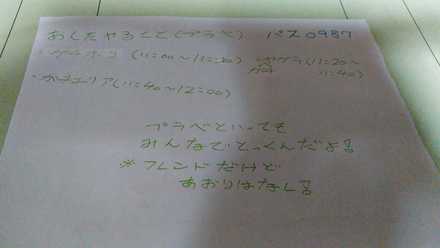 あしたやること(プラベ) パス0987
・ガチホコ (11:00〜11:20) ・ガチヤグラ(11:20〜11:40)
・ガチエリア(11:40〜12:00)
プラベといっても
みんなでとっくんだよ!
※フレンドだけど
あおりはなし!